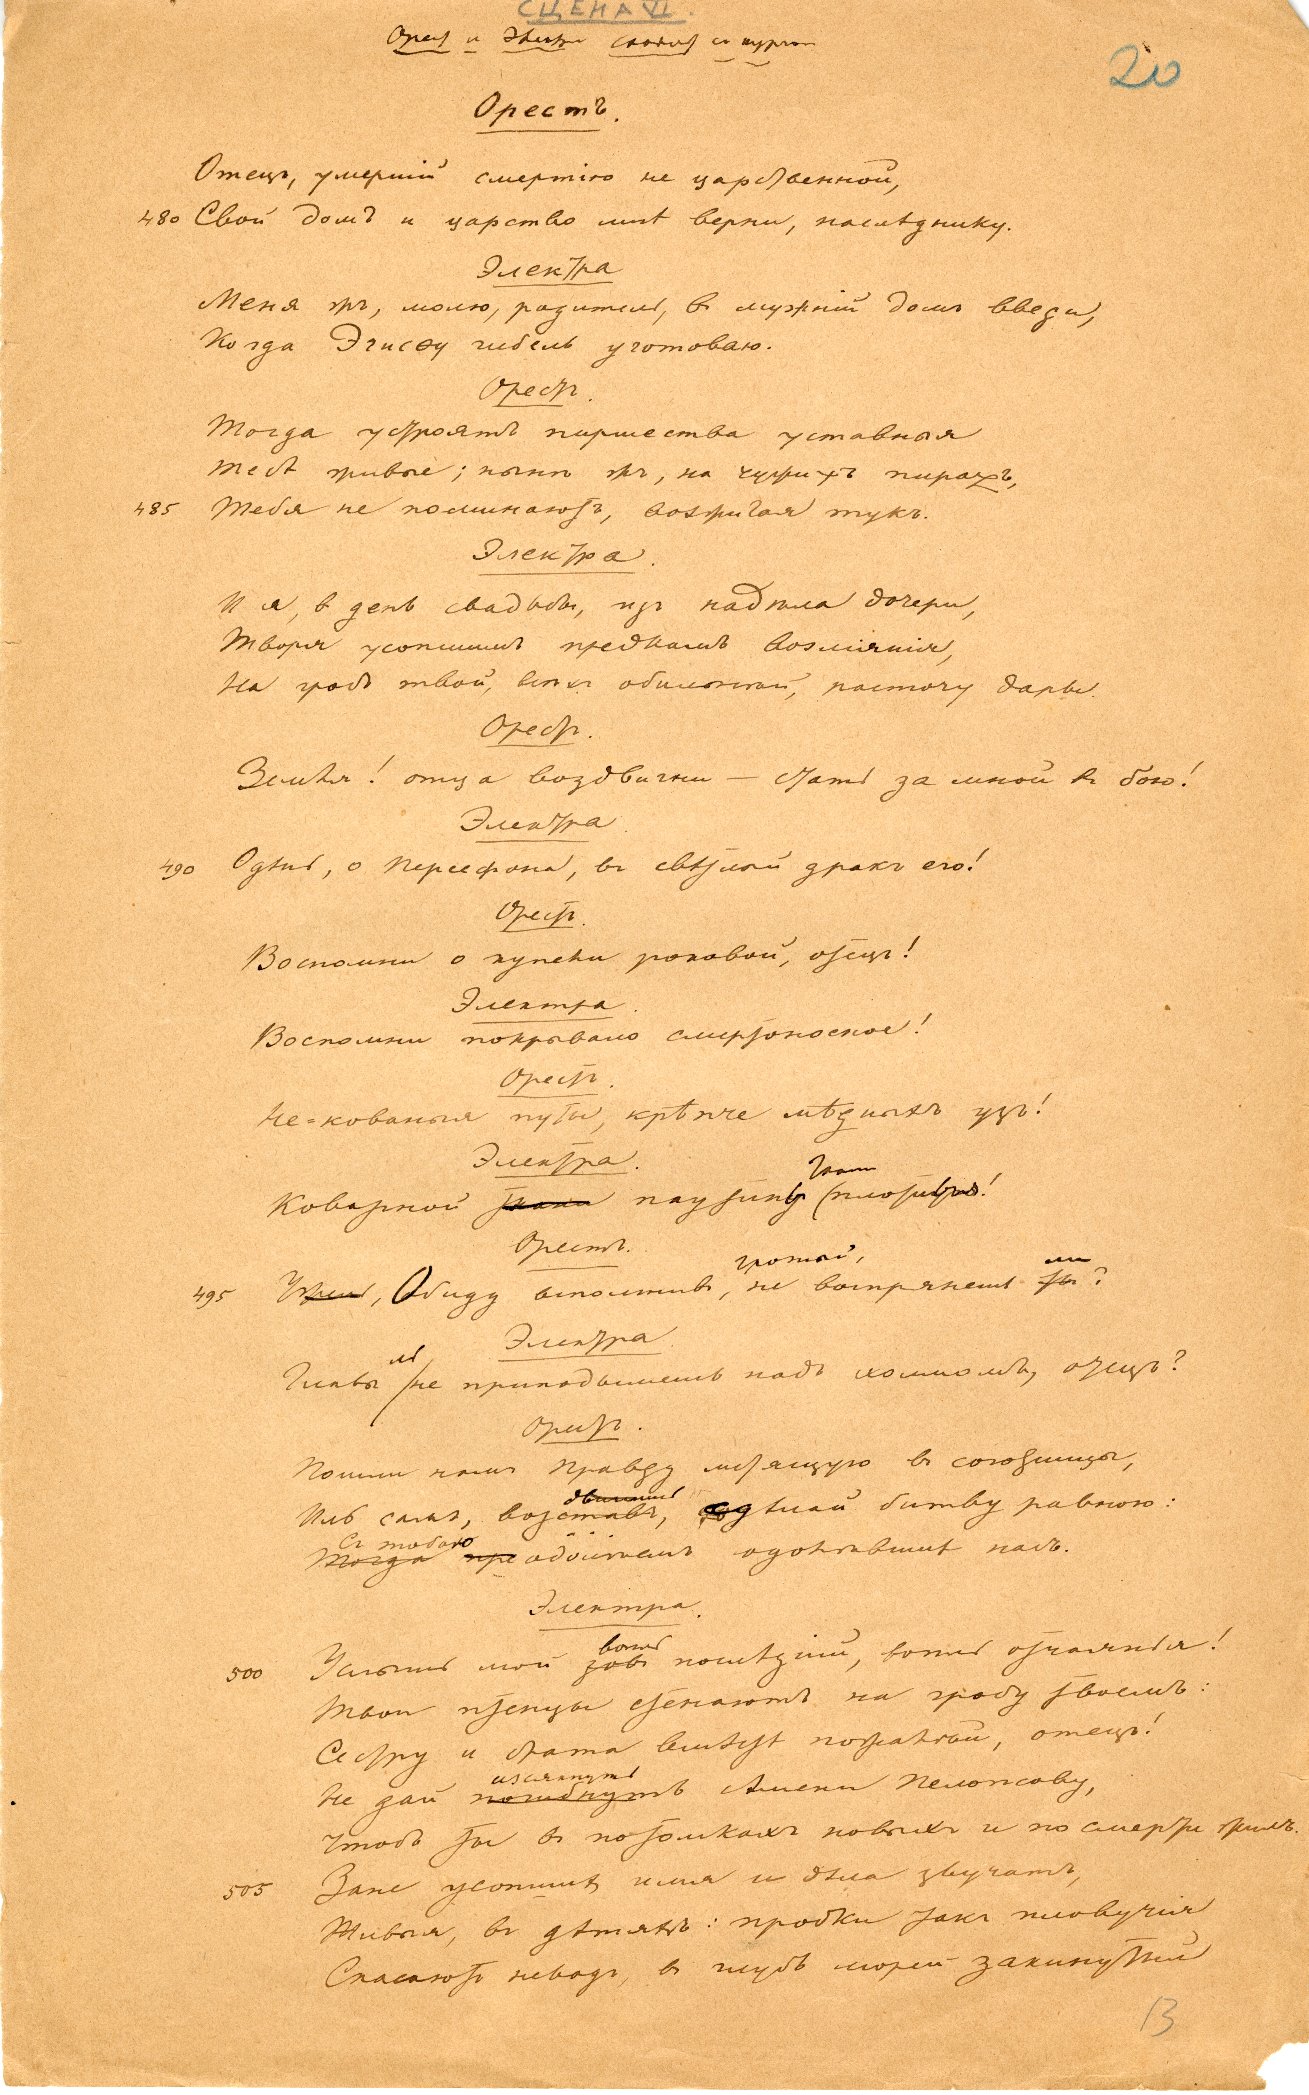 СЦЕНА VI.
Орест и Электра сходят с кургана
20
Орестъ.
Отецъ, умершій смертію не царственной,
480 Свой домъ и царство мнѣ верни, наслѣднику.
Электра
Меня жъ, молю, родитель, въ мужній домъ введи,
Когда Эгисѳу гибель уготоваю.
Орестъ.
Тогда устроятъ пиршества уставныя
Тебѣ живые; нынѣ жъ, на чужихъ пирахъ,
485 Тебя не поминаютъ, возжигая тукъ.
Электра.
И я, въ день свадьбы, изъ надѣла дочери,
Творя усопшимъ предкамъ возліянія,
На гробъ твой, всѣхъ обильнѣй, расточу дары.
Орестъ.
Земля! отца воздвигни — стать за мной въ бою!
Электра
490 Одѣнь, о Персефона, въ свѣтлый зракъ его!
Орестъ.
Воспомни о купели роковой, отецъ!
Электра.
Воспомни покрывало смертоносное!
Орестъ.
Не-кованыя путы, крѣпче мѣдныхъ узъ!
Электра.
Ткани
Коварной ткани паутину
Орестъ.
ли
495 Обиду вспомнивъ, не воспрянешь ты?
Электра
ль
Главы не приподымешь надъ холмомъ, отецъ?
Орестъ.
Пошли намъ Правду мстящую въ союзницы,
Иль самъ, возставъ, сдѣлай битву равною:
Съ тобою
Тогда преодолѣемъ одолѣвшихъ насъ.
Электра.
вопль
500 Услышь мой зовъ послѣдній, вопль отчаянья!
Твои птенцы стенаютъ на гробу твоемъ:
Сестру и брата вмѣстѣ пожалѣй, отецъ!
изсякнуть
Не дай погибнуть сѣмени Пелопсову,
Чтобъ ты въ потомкахъ новыхъ и по смерти жилъ.
505 Зане усопшихъ имя и дѣла звучатъ,
Живыя, въ дѣтяхъ: пробки такъ пловучія
Спасаютъ неводъ, въ глубь морей закинутый
13